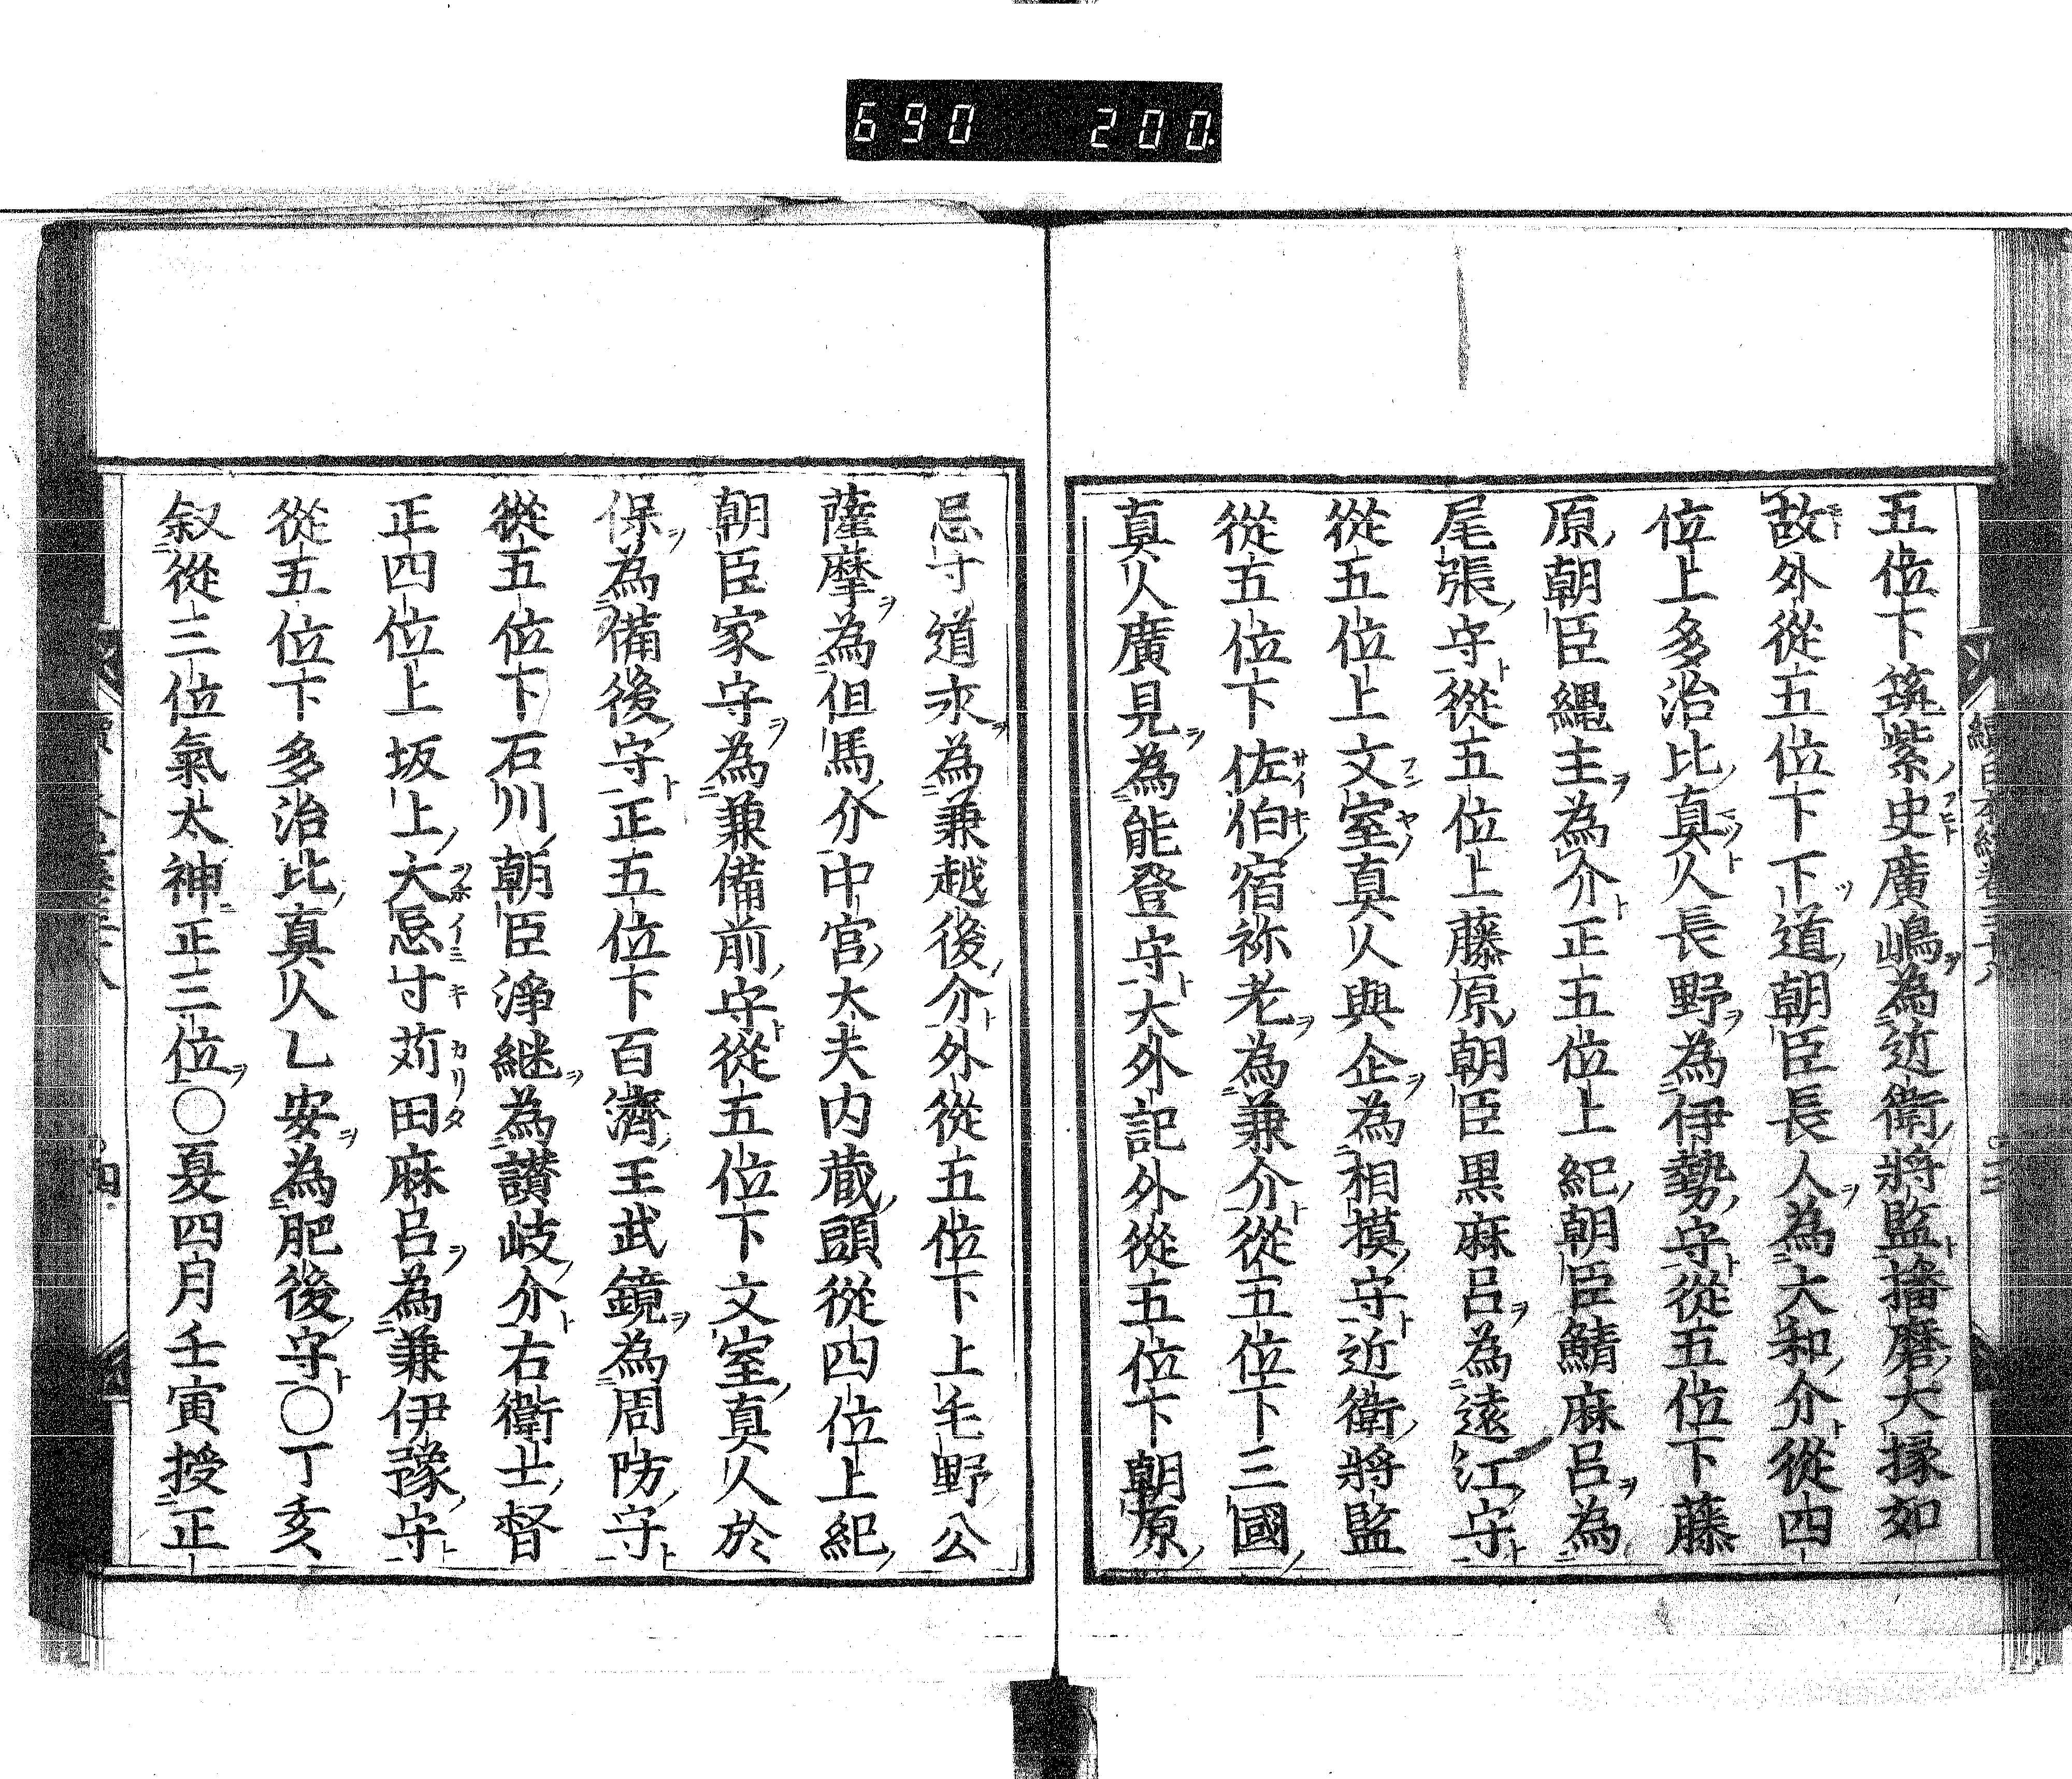 690 200
五位下筑紫史廣嶋為近衛將監播磨大掾如
故外從五位下下道朝臣長人為大和介從四
位上多治比真人長野為伊勢守從五位下藤
原朝臣縄主為介正五位上紀朝臣鯖麻呂為
尾張守從五位上藤原朝臣黒麻呂為遠江守
從五位上文室真人與企為相摸守近衛將監
從五位下佐伯宿祢老為兼介從五位下三國
真人廣見為能登守大外記外從五位下朝原
忌寸道永為兼越後介外從五位下上毛野公
薩摩為但馬介中宮大夫内蔵頭從四位上紀
朝臣家守為兼備前守從五位下文室真人於
保為備後守正五位下百濟王武鏡為周防守
從五位下石川朝臣淨継為讃岐介右衛士督
正四位上坂上大忌寸苅田麻呂為兼伊豫守
從五位下多治比真人乙安為肥後守○丁亥
叙從三位氣太神正三位○夏四月壬寅授正